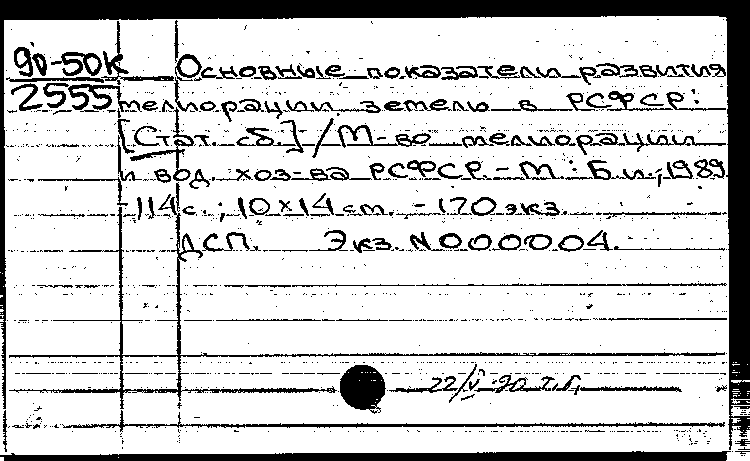 90-50к
2555
Основные показатели развития
мелиорации земель в РСФСР:
[Стат. сб.] / М-во мелиорации
и вод. хоз-ва РСФСР. - М : Б.и., 1989
-114 с. ; 10х14 см. - 170 экз.
ДСП. Экз. N 000004.
22/V-90 т.г.